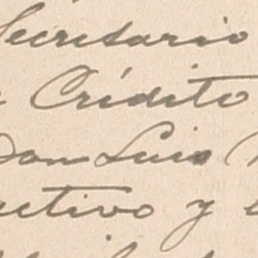 Secretario
Crédito
Don Luis
activo y